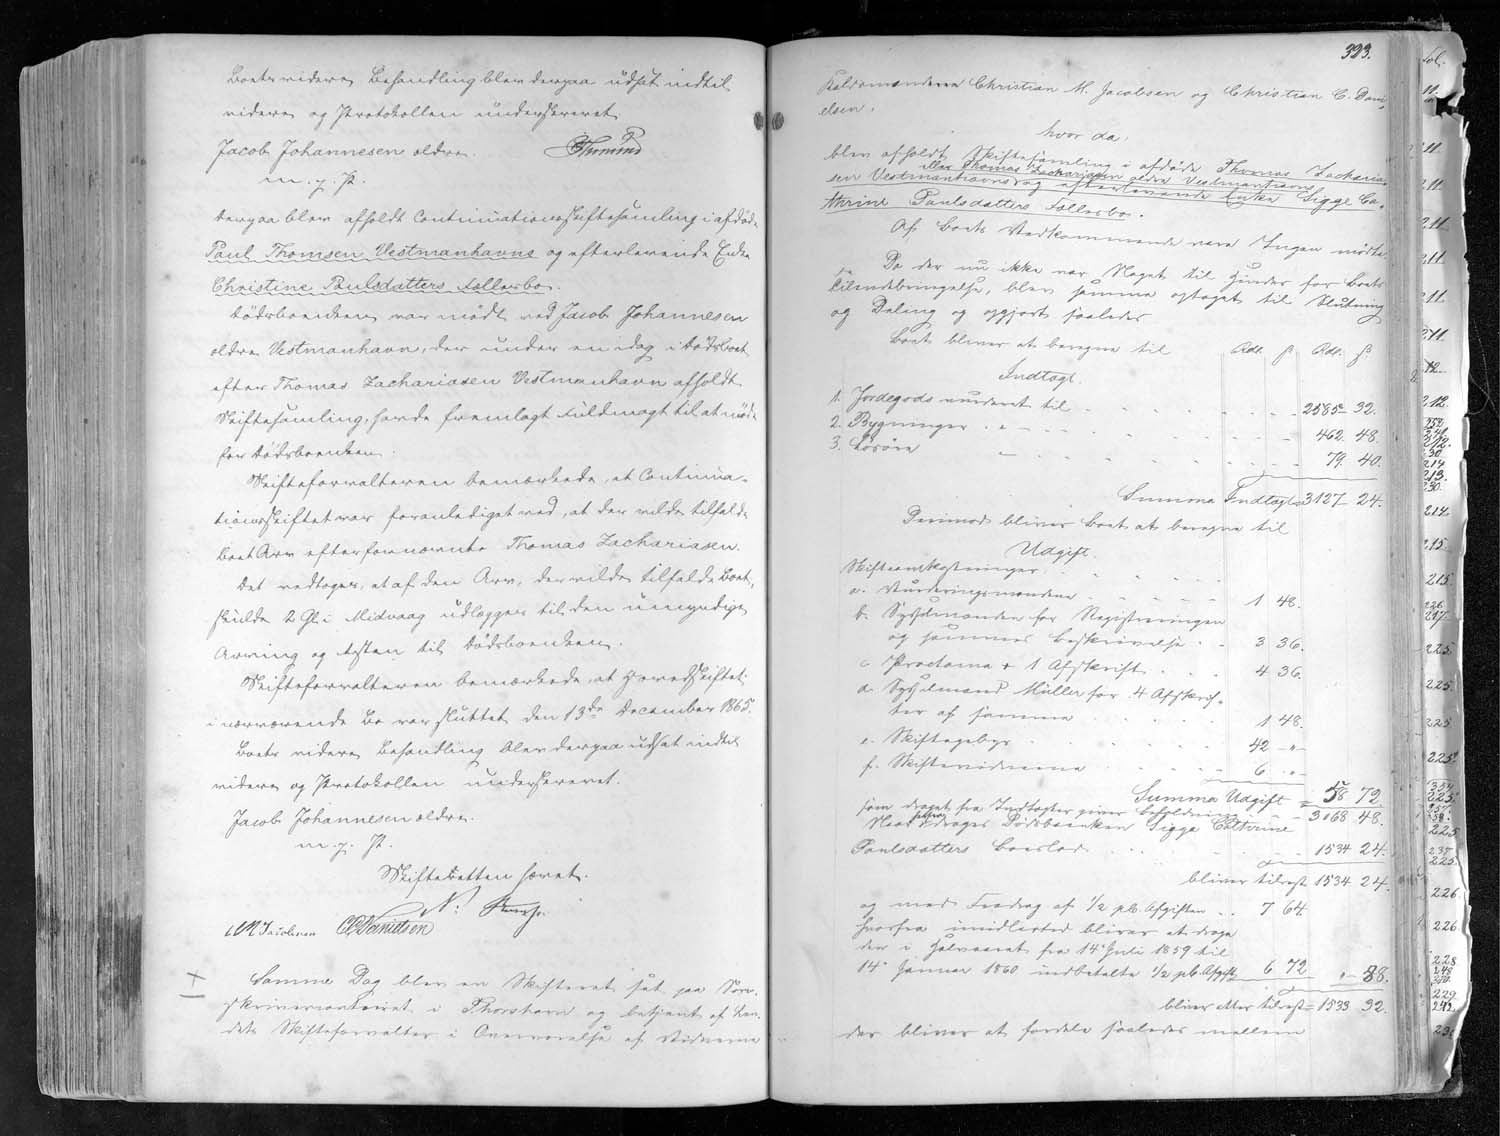 Boets videre Behandling blev derpaa udsat indtil
videre og Protokollen underskrevet
Jacob Johannesen ældre.
m. p. P.
derpaa blev afholdt Continuationsskiftesamling i afdøde
Paul Thomsen Vestmanhavns og efterlevende Enke
Christine Poulsdatters Fællesbo.
Dødsboenken var mødt ved Jacob Johannesen
ældre Vestmanhavn, der under en idag i Dødsboet
efter Thomas Zachariasen Vestmanhavn afholdt
Skiftesamling, havde fremlagt Fuldmagt til at møde
for Dødsboenken.
Skifteforvalteren bemærkede, at Continua-
tionsskiftet var foranlediget ved, at der vilde tilfalde
Boet Arv efter fornævnte Thomas Zachariasen.
Det vedtoges, at af den Arv, der vilde tilfalde Boet,
skulde 2 Gl. i Midvaag udlægges til den umyndige
Arving og Resten til Dødsboenken.
Skifteforvalteren bemærkede, at Hovedskiftet
i nærværende Bo var sluttet den 13de December 1865.
Boets videre Behandling blev derpaa udsat indtil
videre og Protokollen underskrevet.
Jacob Johannesen ældre.
m. p. P.
Skifteretten hævet.
CMJacobsen CCDanielsen
Samme Dag blev en Skifteret sat paa Soren-
skrivercontoiret i Thorshavn og betjent af Lan-
dets Skifteforvalter i Overværelse af Vidnerne
323.
Kaldsmændene Christian M. Jacobsen og Christian C. Dani-
elsen,
hvor da:
blev afholdt Skiftesamling i afdøde Thomas Zacharia-
eller Thomas Zachariasen ældre Vestmanhavns
sen Vestmanhavns og efterlevende Enke Sigge Ca-
thrine Poulsdatters Fællesbo.
Af Boets Vedkommende vare Ingen mødte.
Da der nu ikke var Noget til Hinder for Boets
Tilendebringelse, blev samme optaget til Slutning
og Deling og opgjort saaledes
Boet bliver at beregne til Rdl. ß Rdl. ß
Indtægt.
1. Jordegods vurderet til 2585 32.
2. Bygninger 462. 48.
3. Løsøre 79. 40.
Summa Indtægt 3127 24.
Derimod bliver Boet at beregne til
Udgift.
Skifteomkostninger.
a. Vurderingsmændene 1 48.
b. Sysselmanden for Registreringen
og sammes Beskrivelse 3 36.
c. Proclama + 1 Afskrift 4 36.
d. Sysselmand Müller for 4 Afskrif-
ter af samme 1 48.
e. Skiftegebyr 42 "
f. Skiftevidnerne 6 "
Summa Udgift 58 72
som draget fra Indtægten giver Beholdning 3068 48.
Naar fradrages Dødsboenken Sigge Cathrine
Poulsdatters Boeslod 1534 24.
bliver tilrest 1534 24.
og med Fradrag af 1/2 pCt. Afgiften 7 64.
hvorfra imidlertid bliver at drage
den i Halvaaret fra 14 Juli 1859 til
14 Januar 1860 indbetalte 1/2 pCt. Afgift 6 72 " 88.
bliver etter tilrest 1533 32.
der bliver at fordele saaledes mellem